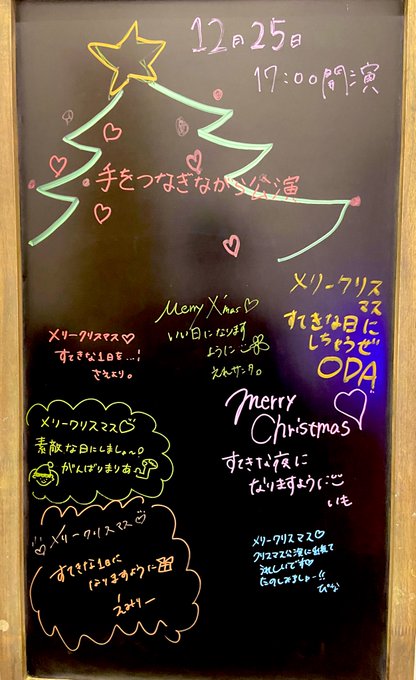 12月25日
17:00開演
手をつなぎながら公演
メリークリスマス
すてきな日に
しちゃうぜ
ODA
Merry X'mas♡
いい日になります
ように
えれサンタ。
メリークリスマス♡
すてきな1日を...!
さえより。
メリークリスマス♡
素敵な日にしましょ〜。
がんばりまりあ〜
Merry
Christmas
すてきな夜に
なりますように
いも
♡メリークリスマス♡
すてきな1日に
なりますように
メリークリスマス♡
クリスマス公演に出れて
うれしいです♡
たのしみましょー!!
ぴな